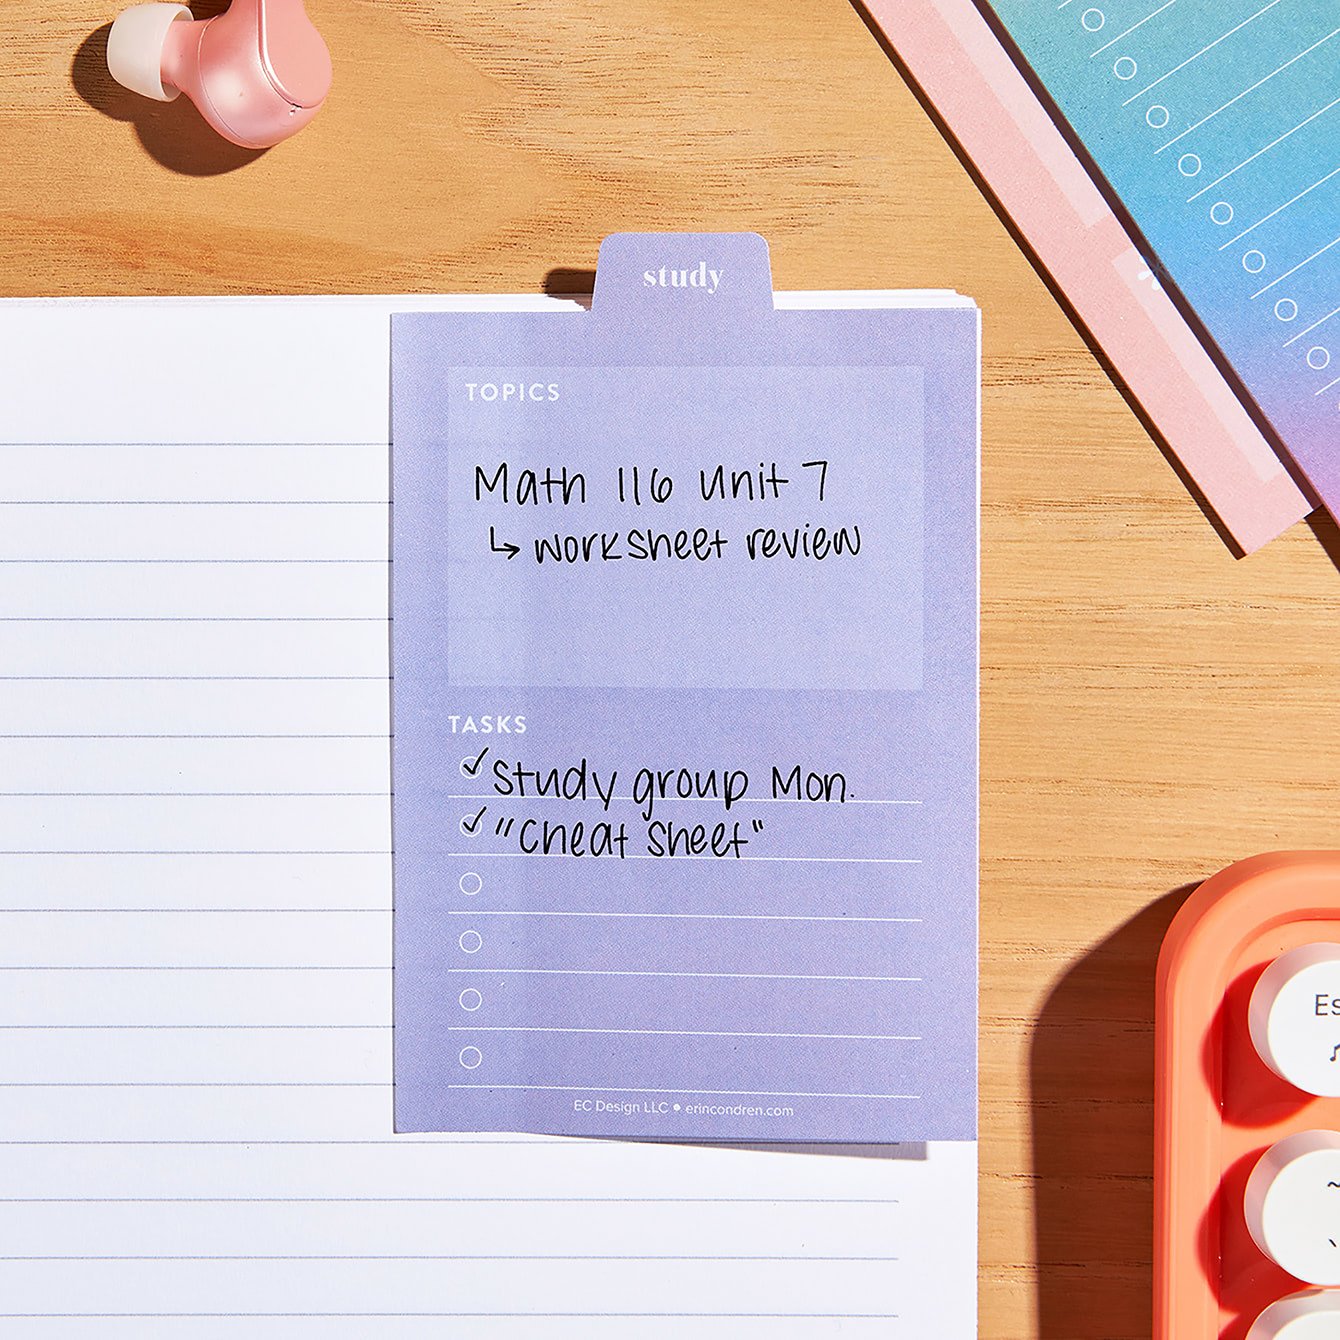 study
TOPICS
Math 116 Unit 7
↳ worksheet review
TASKS
✓ Study group Mon.
✓ "Cheat Sheet"
EC Design LLC • erincondren.com
Es
~